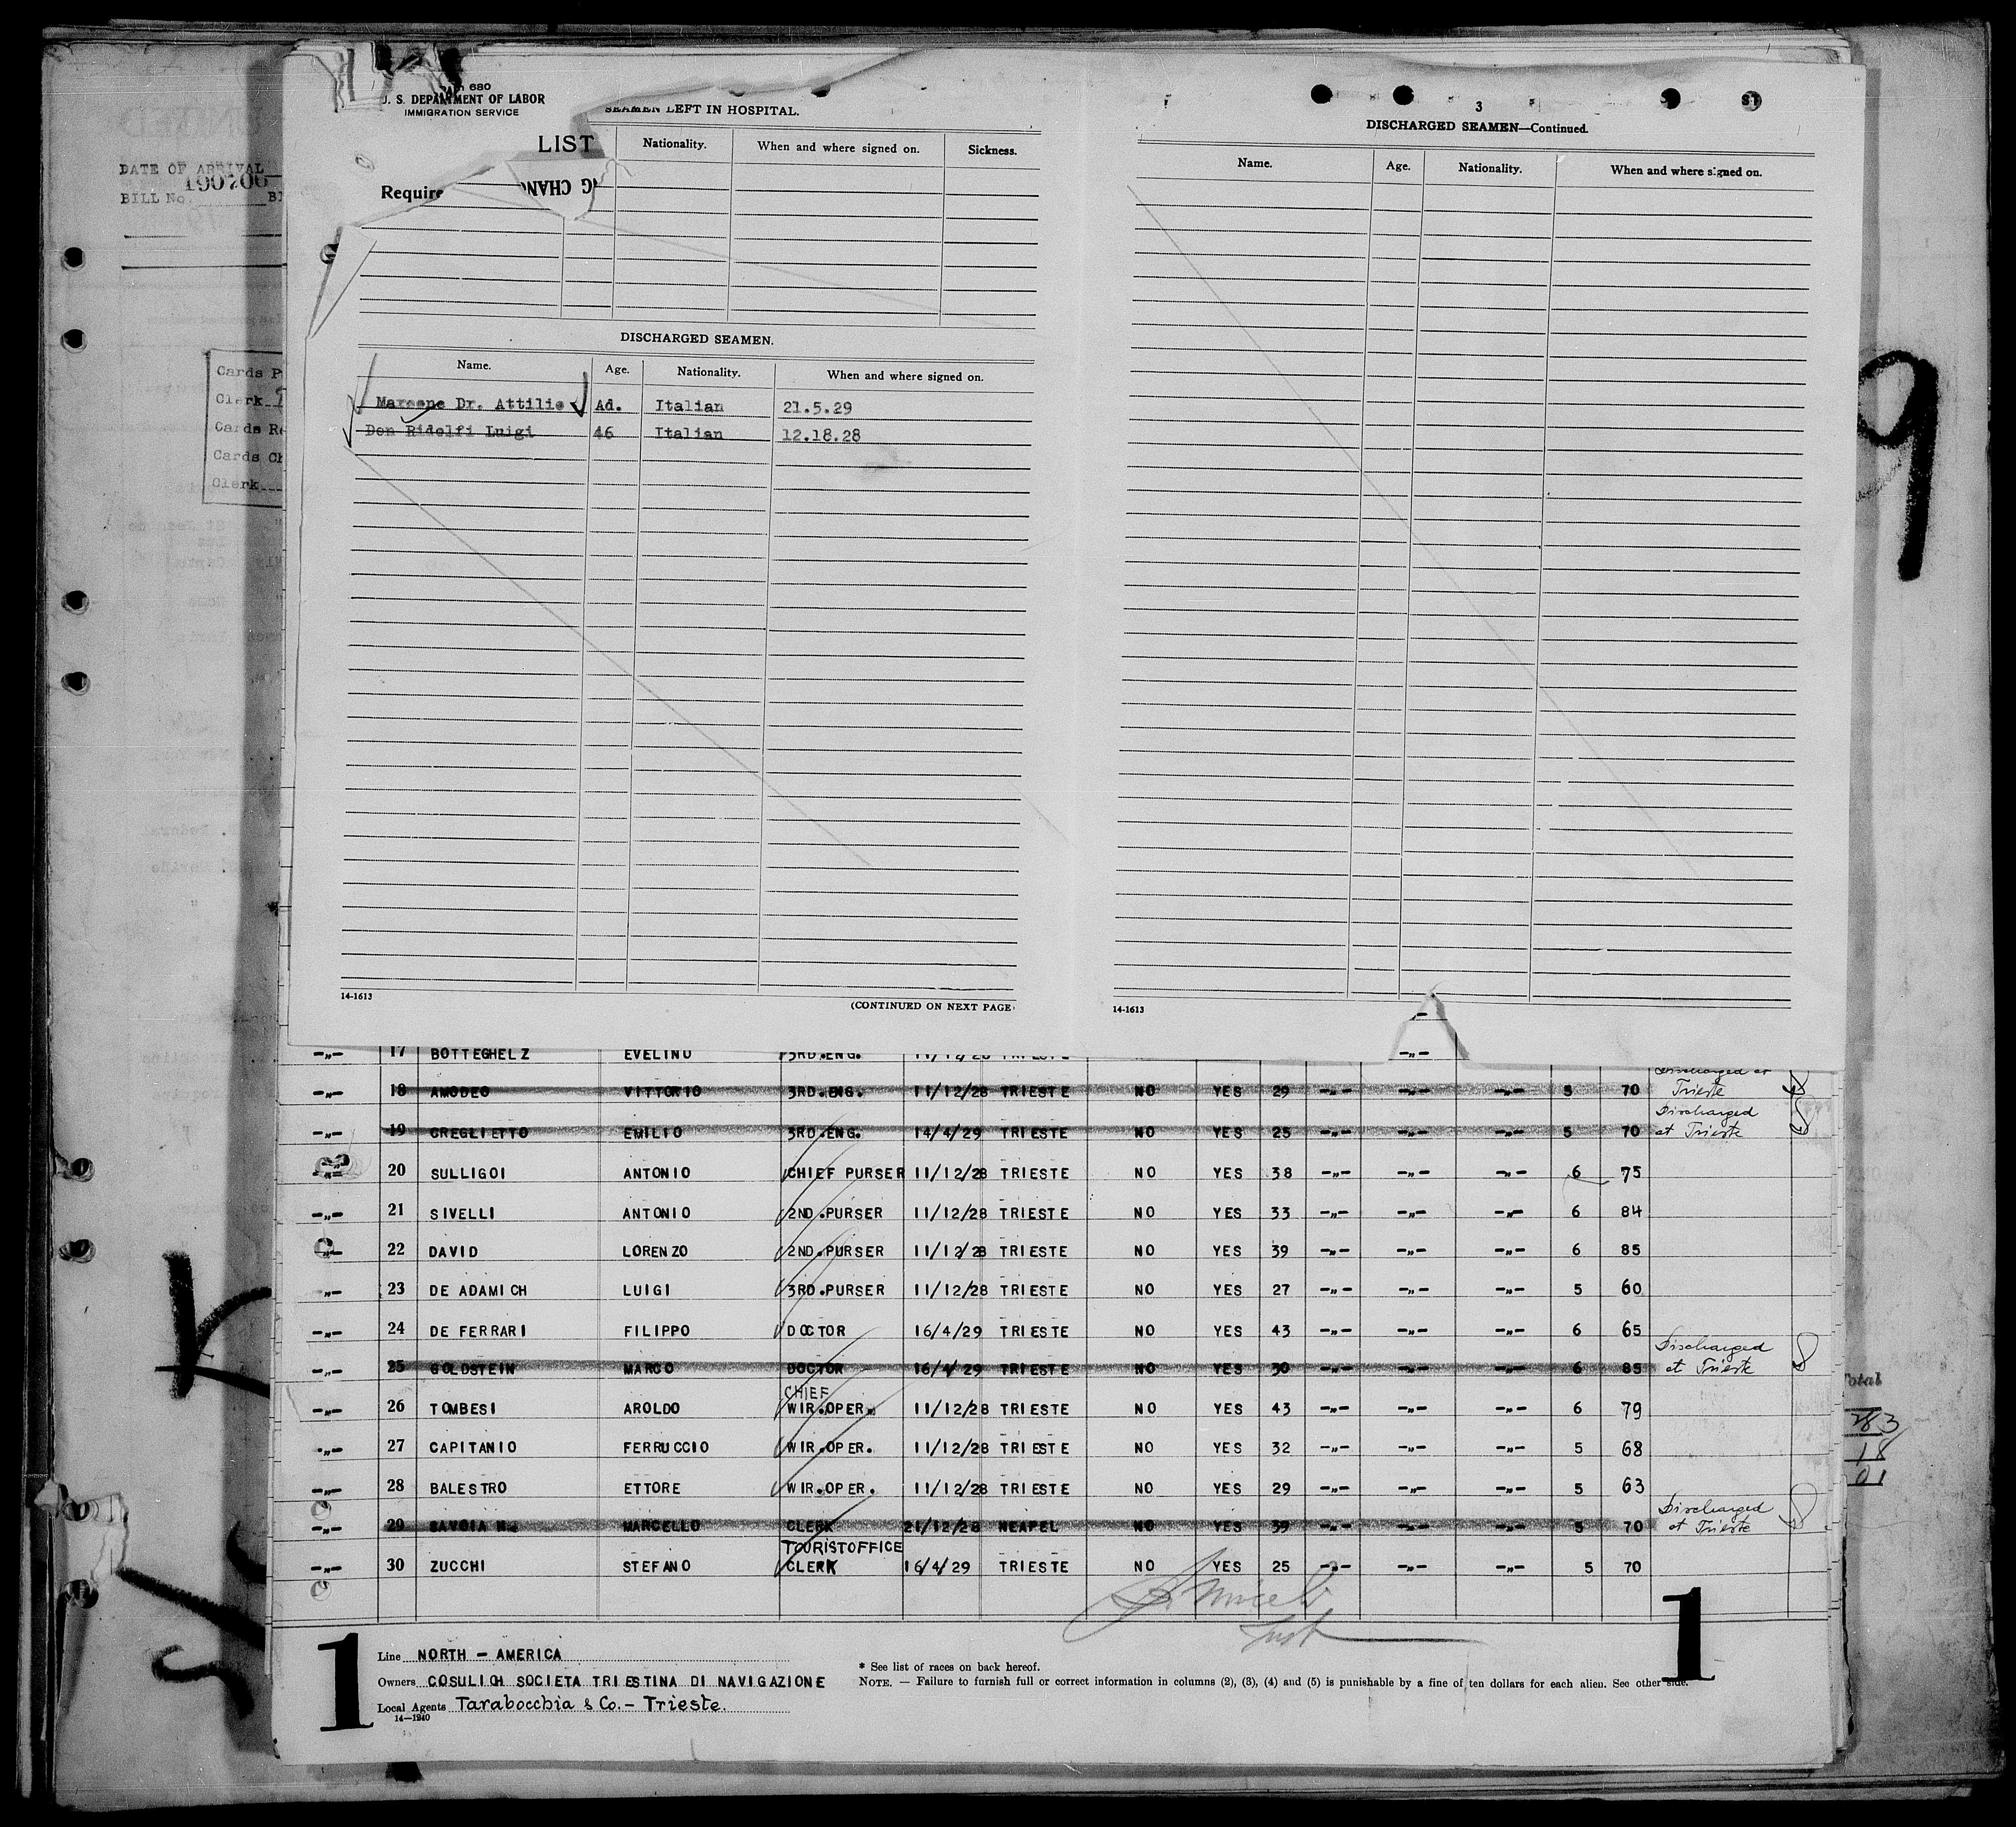 DATE OF ARRIVAL
190706
BILL No.
Cards
Clerk
Cards
Cards
Clerk
680
U. S. DEPARTMENT OF LABOR
IMMIGRATION SERVICE
LIST
SEAMEN LEFT IN HOSPITAL.
Nationality. When and where signed on. Sickness.
DISCHARGED SEAMEN.
Name. Age. Nationality. When and where signed on.
Dr. Attilio Ad. Italian 21.5.29
Don Ridolfi Luigi 46 Italian 12.18.28
14-1613 (CONTINUED ON NEXT PAGE
3
DISCHARGED SEAMEN—Continued.
Name. Age. Nationality. When and where signed on.
14-1613
9
-„- 17 BOTTEGHELZ EVELINO 3RD.ENG. 11/12/28 TRIESTE -„-
-„- 18 AMODEO VITTORIO 3RD.ENG. 11/12/28 TRIESTE NO YES 29 -„- -„- -„- 5 70 Discharged at Trieste
-„- 19 CREGLIETTO EMILIO 3RD.ENG. 14/4/29 TRIESTE NO YES 25 -„- -„- -„- 5 70 Discharged at Trieste
-„- 20 SULLIGOI ANTONIO CHIEF PURSER 11/12/28 TRIESTE NO YES 38 -„- -„- -„- 6 75
-„- 21 SIVELLI ANTONIO 2ND.PURSER 11/12/28 TRIESTE NO YES 33 -„- -„- -„- 6 84
-„- 22 DAVID LORENZO 2ND.PURSER 11/12/28 TRIESTE NO YES 39 -„- -„- -„- 6 85
-„- 23 DE ADAMICH LUIGI 3RD.PURSER 11/12/28 TRIESTE NO YES 27 -„- -„- -„- 5 60
-„- 24 DE FERRARI FILIPPO DOCTOR 16/4/29 TRIESTE NO YES 43 -„- -„- -„- 6 65
-„- 25 GOLDSTEIN MARCO DOCTOR 16/4/29 TRIESTE NO YES 30 -„- -„- -„- 6 85 Discharged at Trieste
-„- 26 TOMBESI AROLDO CHIEF WIR.OPER. 11/12/28 TRIESTE NO YES 43 -„- -„- -„- 6 79
-„- 27 CAPITANIO FERRUCCIO WIR.OPER. 11/12/28 TRIESTE NO YES 32 -„- -„- -„- 5 68
-„- 28 BALESTRO ETTORE WIR.OPER. 11/12/28 TRIESTE NO YES 29 -„- -„- -„- 5 63
-„- 29 SAVOIA N. MARCELLO CLERK 21/12/28 NEAPEL NO YES 39 -„- -„- -„- 5 70 Discharged at Trieste
-„- 30 ZUCCHI STEFANO TOURISTOFFICE CLERK 16/4/29 TRIESTE NO YES 25 -„- -„- -„- 5 70
Total
283
18
01
1
Line NORTH - AMERICA
Owners COSULICH SOCIETA TRIESTINA DI NAVIGAZIONE
Local Agents Tarabocchia & Co. - Trieste.
14—1240
* See list of races on back hereof.
NOTE. — Failure to furnish full or correct information in columns (2), (3), (4) and (5) is punishable by a fine of ten dollars for each alien. See other side.
1